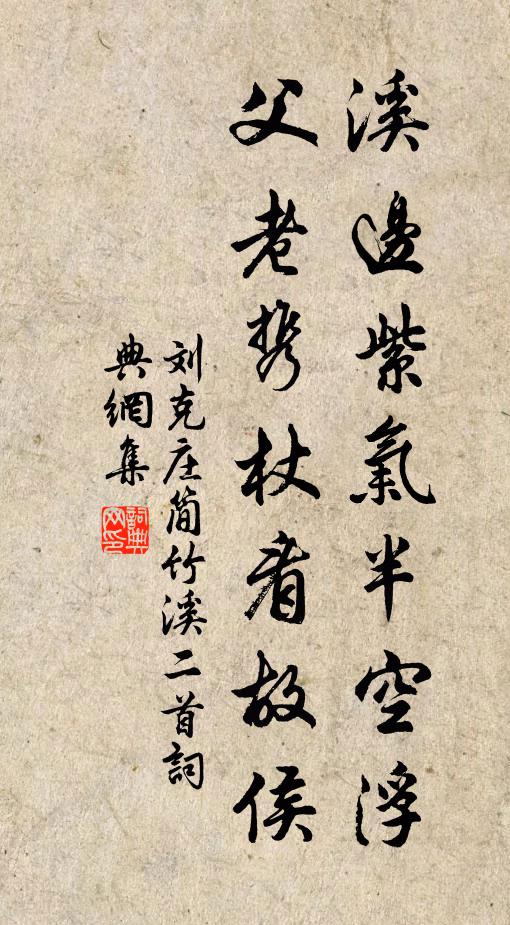 溪邊紫氣半空浮
父老携杖看故侯
刘克庄简竹溪二首詞
典網集
詞典
网印